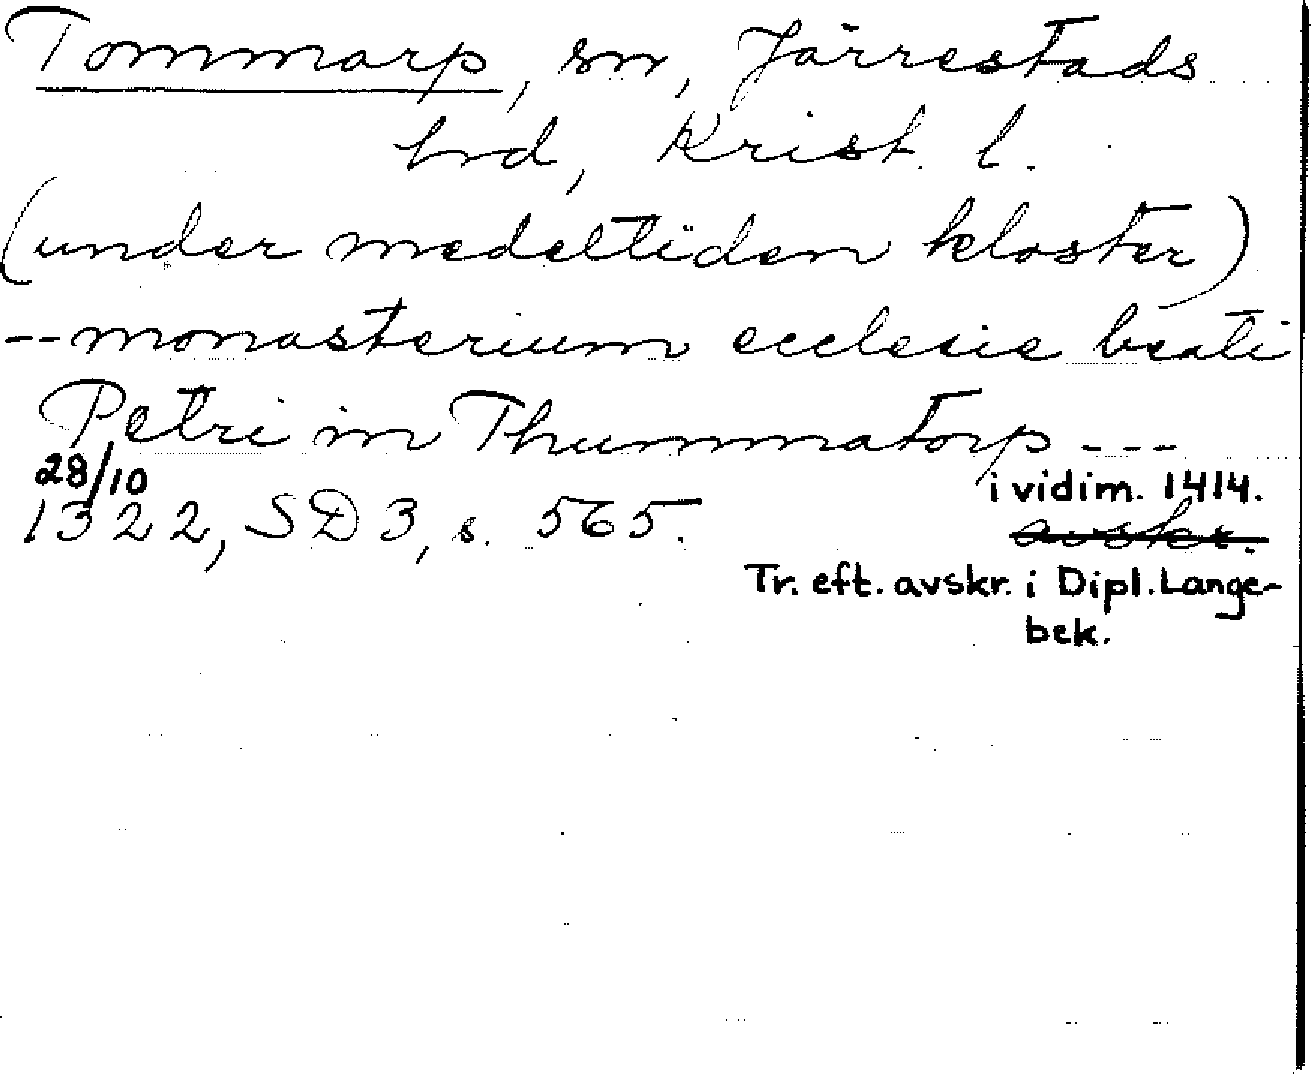 Tommarp, sn, Järrestads
hrd, Krist. l.
(under medeltiden kloster)
-- monasterium ecclesie beati
Petri in Thummatorp ---
28/10
1322, SD 3, s. 565.
i vidim. 1414.
avskr.
Tr. eft. avskr. i Dipl. Lange-
bek.